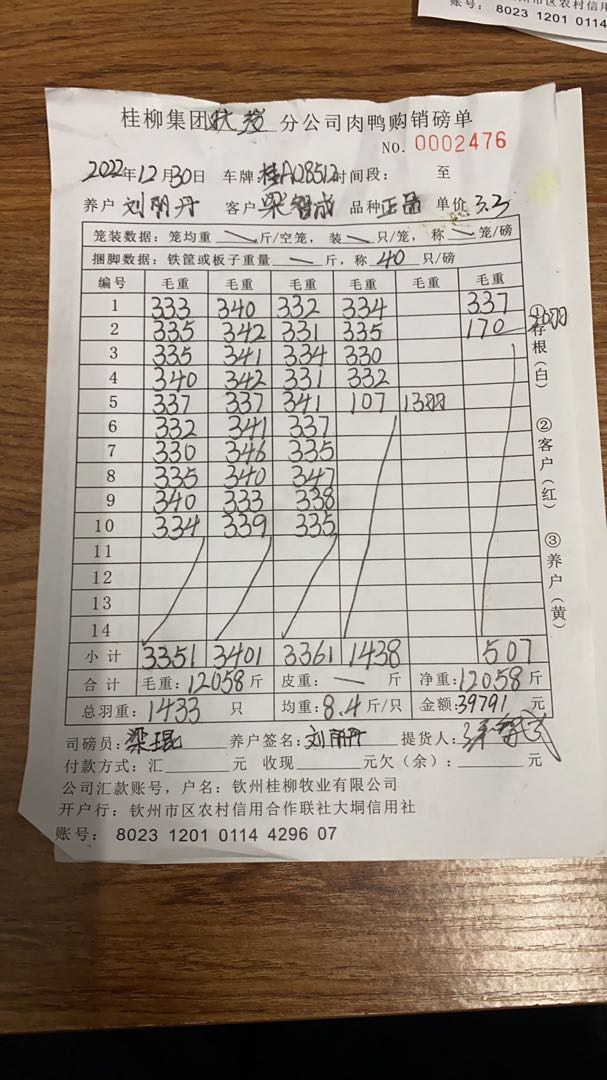 州市区农村信用
账号：8023 1201 0114
桂柳集团 分公司肉鸭购销磅单
No. 0002476
2022年12月30日 车牌：桂A08512 时间段： 至
养户 刘丽丹 客户 梁智成 品种 正品 单价 3.3
笼装数据：笼均重 斤/空笼，装 只/笼，称 笼/磅
捆脚数据：铁筐或板子重量 — 斤，称 40 只/磅
编号 毛重 毛重 毛重 毛重 毛重 毛重
1 333 340 332 334 337
2 335 342 331 335 170
3 335 341 334 330
4 340 342 331 332
5 337 337 341 107 13羽
6 332 341 337
7 330 346 335
8 335 340 347
9 340 333 338
10 334 339 335
11
12
13
14
小计 3351 3401 3361 1438 507
合计 毛重：12058斤 皮重：— 斤 净重：12058斤
总羽重：1433 只 均重：8.4斤/只 金额：39791 元
司磅员：梁琨 养户签名：刘丽丹 提货人：
付款方式：汇 元 收现 元欠（余）： 元
公司汇款账号，户名：钦州桂柳牧业有限公司
开户行：钦州市区农村信用合作联社大垌信用社
账号：8023 1201 0114 4296 07
①存根（白）
②客户（红）
③养户（黄）